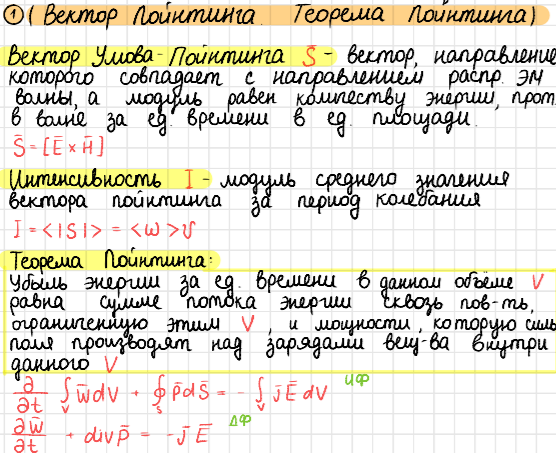 ① (Вектор Пойнтинга. Теорема Пойнтинга)
Вектор Умова-Пойнтинга S̄ - вектор, направление
которого совпадает с направлением распр. ЭМ
волны, а модуль равен количеству энергии, прот
в волне за ед. времени в ед. площади.
S̄ = [Ē × H̄]
Интенсивность I - модуль среднего значения
вектора пойнтинга за период колебания
I = <|S|> = <w>v
Теорема Пойнтинга:
Убыль энергии за ед. времени в данном объёме V
равна сумме потока энергии сквозь пов-ть,
ограниченную этим V, и мощности, которую силы
поля производят над зарядами вещ-ва внутри
данного V
∂/∂t ∫_V w̄dV + ∮_S P̄dS̄ = - ∫_V j̄Ē dV ИФ
∂w̄/∂t + div P̄ = -j̄ Ē ДФ